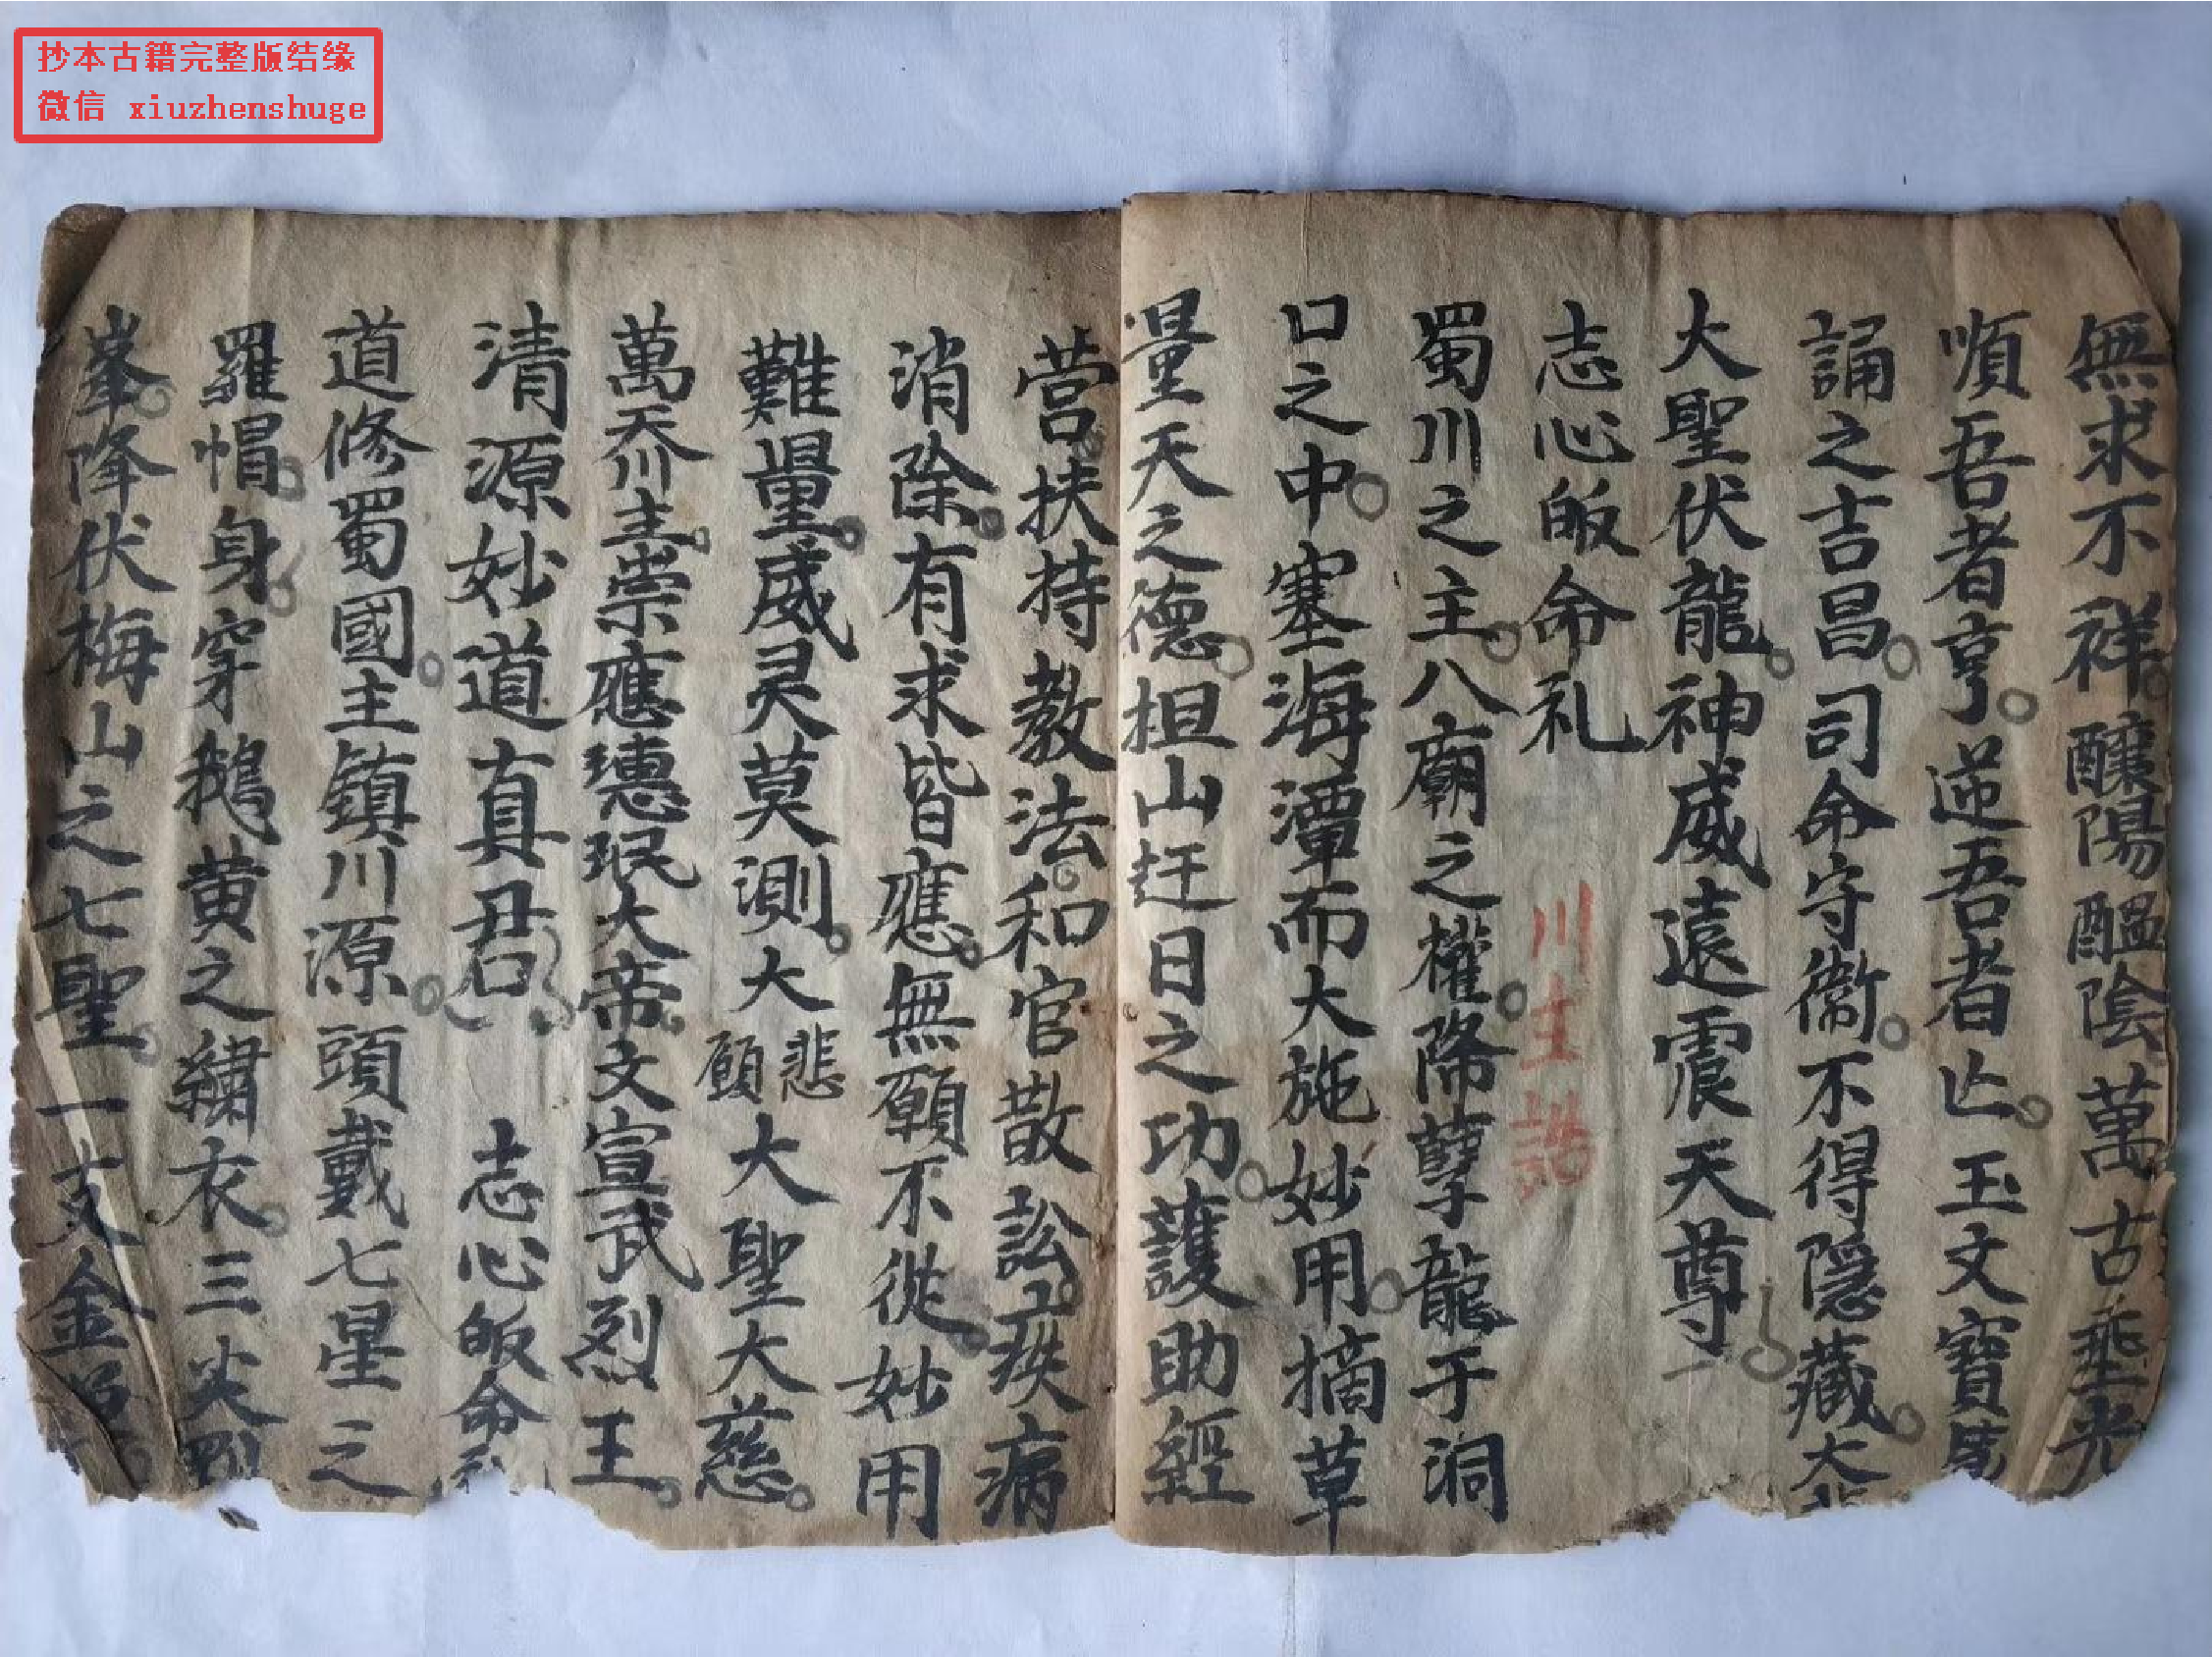 抄本古籍完整版结缘
微信 xiuzhenshuge
無求不祥釀陽醞陰萬古垂光
順吾者亨逆吾者亡玉文寶
誦之吉昌司命守衛不得隠藏大
大聖伏龍神威遠震天尊
志心皈命礼 川主誥
蜀川之主八廟之權降孽龍于洞
口之中塞海潭而大施妙用摘草
量天之德担山赶日之功護助經
营扶持教法和官散訟疾病
消除有求皆應無願不從妙用
難量威灵莫測大悲大願大聖大慈
萬天川主崇應璁珉大帝文宣武烈王
清源妙道真君 志心皈命礼
道修蜀國主鎮川源頭戴七星之
羅帽身穿鵝黄之繡衣三尖
峯降伏梅山之七聖一支金